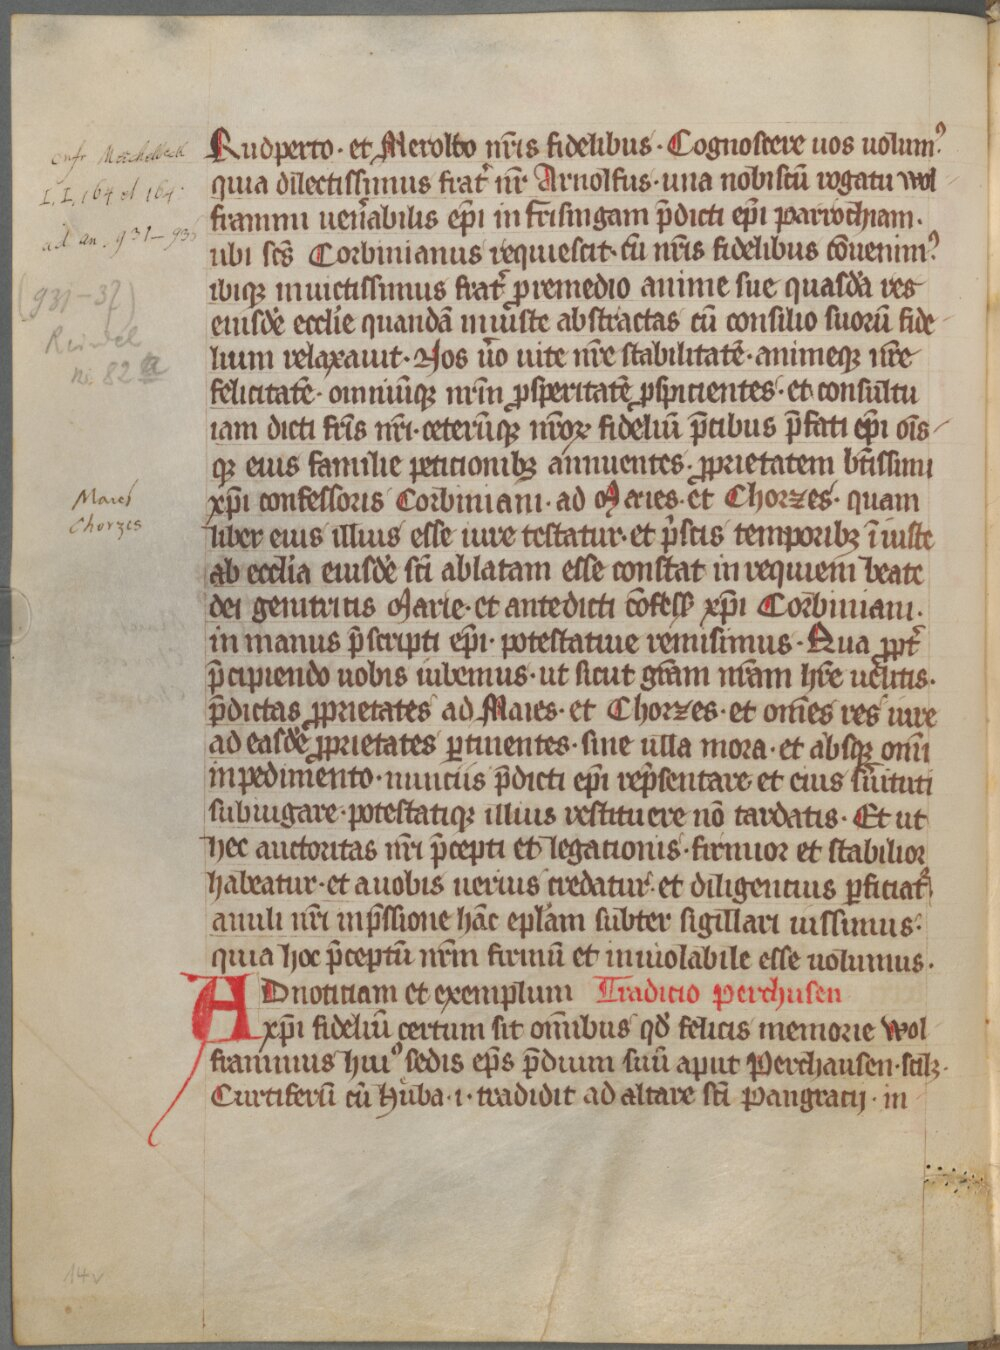 Rudperto · et Merolto nr̄is fidelibus · Cognoscere uos uolum᾿
quia dilectissimus frat̄ nr̄ Arnolfus · una nobiscū rogatu wol
frammi uen̄abilis ep̄i in frisingam p̄dicti ep̄i parrochiam ·
ubi sc̄s Corbinianus requiescit · cū nr̄is fidelibus cōuenim᾿
ibiqꝫ inuictissimus frat̄ ꝓ remedio anime sue quasdā res
eiusdē eccl̄ie quandā iniuste abstractas cū consilio suorū fide
lium relaxauit · Nos ū̊o uite nr̄e stabilitatē · animeqꝫ nr̄e
felicitatē · omniūqꝫ nr̄m ꝓsperitatē ꝓspicientes · et consultu
iam dicti fr̄is nr̄i · ceterūqꝫ nr̄oꝝ fideliū p̄cibus p̄fati ep̄i om̄s
qꝫ eius familie peticionibꝫ annuentes · ꝓprietatem bt̄issimi
xp̄i confessoris Corbiniani · ad Maies · et Chorzes · quam
liber eius illius esse iure testatur · et p̄scis temporibꝫ īiuste
ab eccl̄ia eiusdē sc̄i ablatam esse constat in requiem beate
dei genitricis Marie · et antedicti cōfess̄ xp̄i Corbiniani ·
in manus p̄scripti ep̄i · potestatiue remisimus · Qua ꝓpt̄
p̄cipiendo uobis iubemus · ut sicut gr̄am nr̄am hr̄e uelitis ·
p̄dictas ꝓprietates ad Maies · et Chorzes · et om̄es res iure
ad easdē ꝓprietates ꝑtinentes · sine ulla mora · et absqꝫ om̄i
inpedimento · nunciis p̄dicti ep̄i rep̄sentare et eius s̄uituti
subiugare · potestatiqꝫ illius restituere nō tardatis · Et ut
hec auctoritas nr̄i p̄cepti et legationis · firmior et stabilior
habeatur · et a uobis uerius credatur · et diligencius ꝑficiat᾿
anuli nr̄i inp̄ssione hāc ep̄lam subter sigillari iussimus ·
quia hoc p̄ceptū nr̄m firmū et inuiolabile esse uolumus ·
ADnoticiam et exemplum Tradicio perchusen
xp̄i fideliū certum sit om̄ibus qd̄ felicis memorie wol
frammus hui᾿ sedis ep̄s p̄dium suū aput Perchausen · scilꝫ ·
Curtiferū cū Hůba · i · tradidit ad altare sc̄i pangracij · in
confr Meichelbeck
I, I, 164 et 164 ·
ad an. 931–935
(931–37)
Reindel
Nr. 82 a
Maies
Chorzes
14v